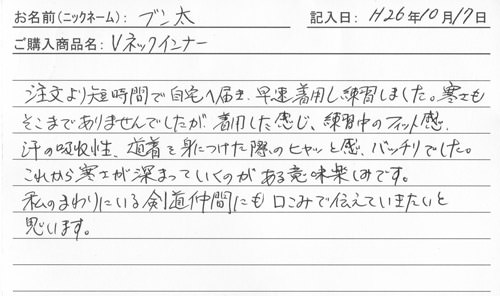 お名前(ニックネーム): ブン太 記入日: H26年10月17日
ご購入商品名: Vネックインナー
注文より短時間で自宅へ届き、早速着用し練習しました。寒さも
そこまでありませんでしたが、着用した感じ、練習中のフィット感、
汗の吸収性、道着を身につけた際のヒヤッと感、バッチリでした。
これから寒さが深まっていくのがある意味楽しみです。
私のまわりにいる剣道仲間にも口こみで伝えていきたいと
思います。